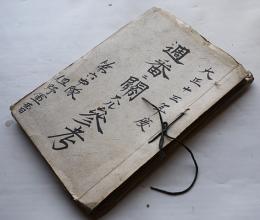 大正十三年度
週番ニ關スル參考
第六中隊